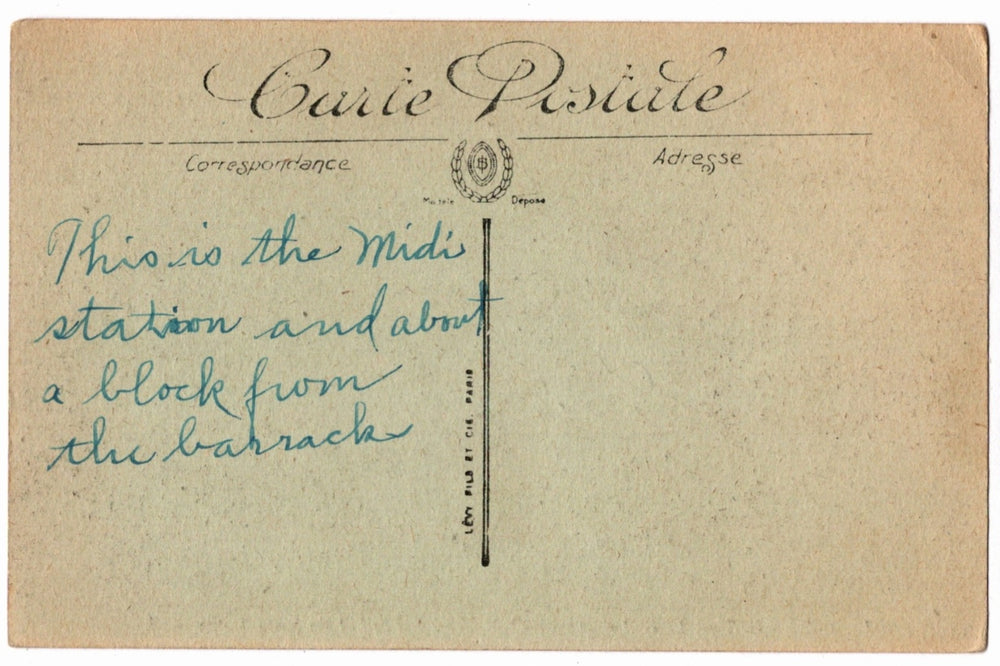 Carte Postale
Correspondance
Adresse
Modèle Déposé
This is the Midi
station and about
a block from
the barrack
LÉVY FILS ET CIE. PARIS